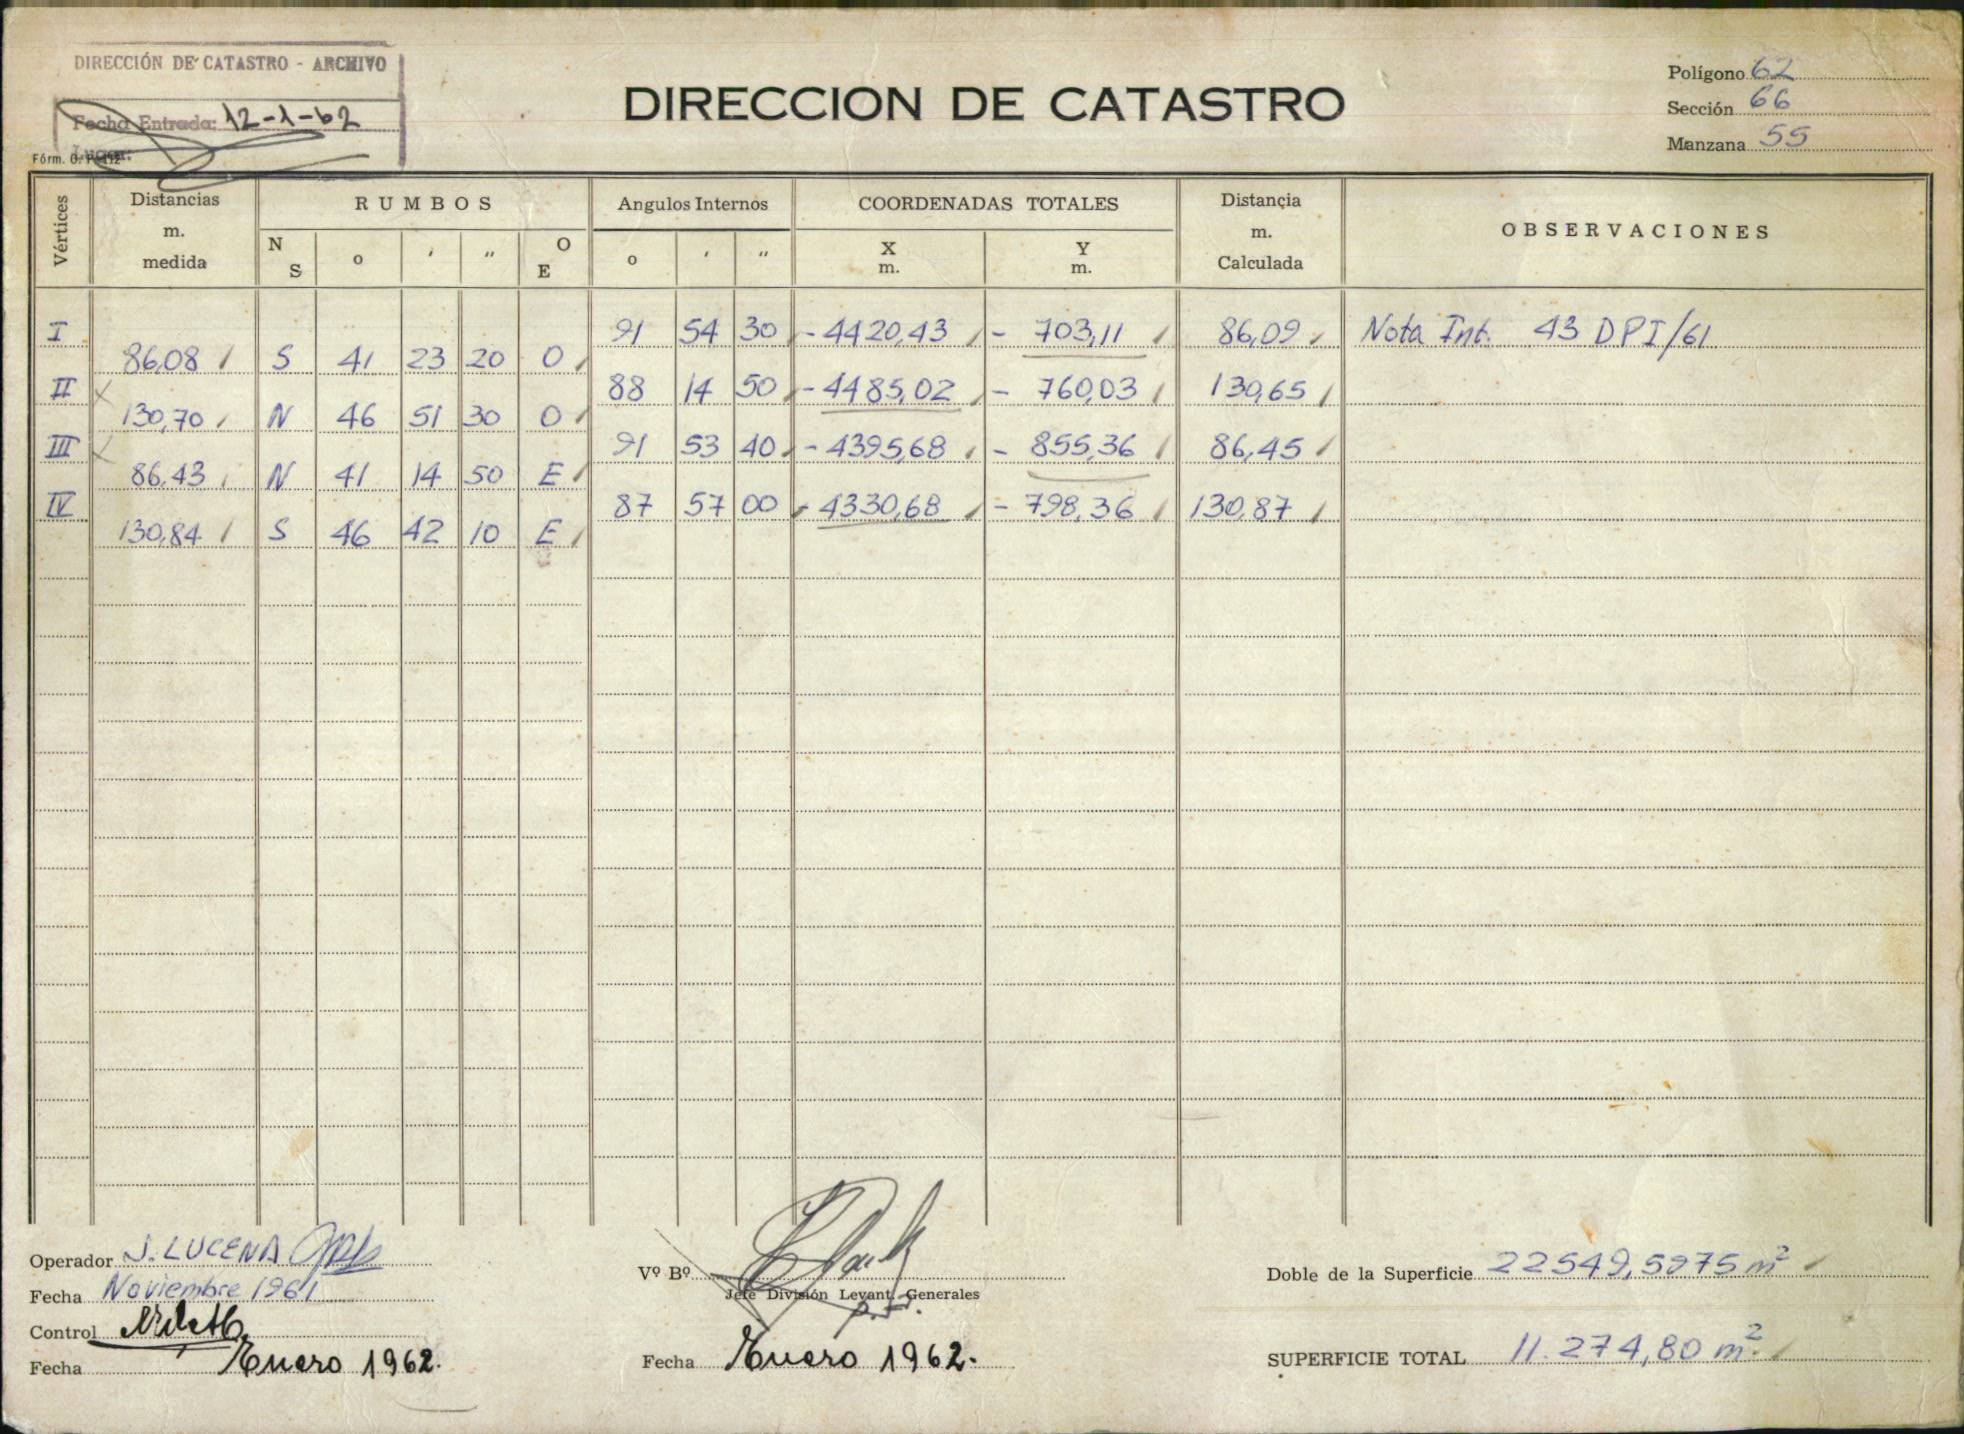 DIRECCIÓN DE CATASTRO - ARCHIVO
Fecha Entrada: 12-1-62
Lugar:
Fórm. O. P.
DIRECCION DE CATASTRO
Polígono 62
Sección 66
Manzana 55
Vértices
Distancias m. medida
RUMBOS
N S
o
'
"
O E
Angulos Internos
o
'
"
COORDENADAS TOTALES
X m.
Y m.
Distancia m. Calculada
OBSERVACIONES
I 91 54 30 - 4420,43 - 703,11 86,09 Nota Int. 43 DPI/61
86,08 S 41 23 20 O
II 88 14 50 - 4485,02 - 760,03 130,65
130,70 N 46 51 30 O
III 91 53 40 - 4395,68 - 855,36 86,45
86,43 N 41 14 50 E
IV 87 57 00 - 4330,68 - 798,36 130,87
130,84 S 46 42 10 E
Operador J. LUCENA
Fecha Noviembre 1961
Control
Fecha Enero 1962.
Vº Bº
Jefe División Levant. Generales
Fecha Enero 1962.
Doble de la Superficie 22549,5975 m²
SUPERFICIE TOTAL 11.274,80 m²